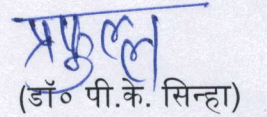 प्रफुल्ल
(डॉ० पी.के. सिन्हा)